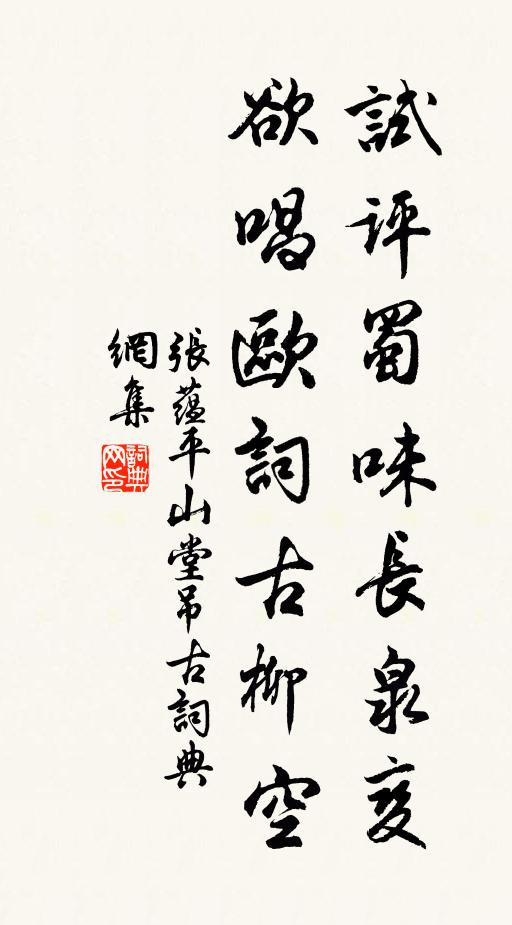 試評蜀味長泉变
欲唱歐詞古柳空
張蘊平山堂吊古詞典
網集
詞典
网印